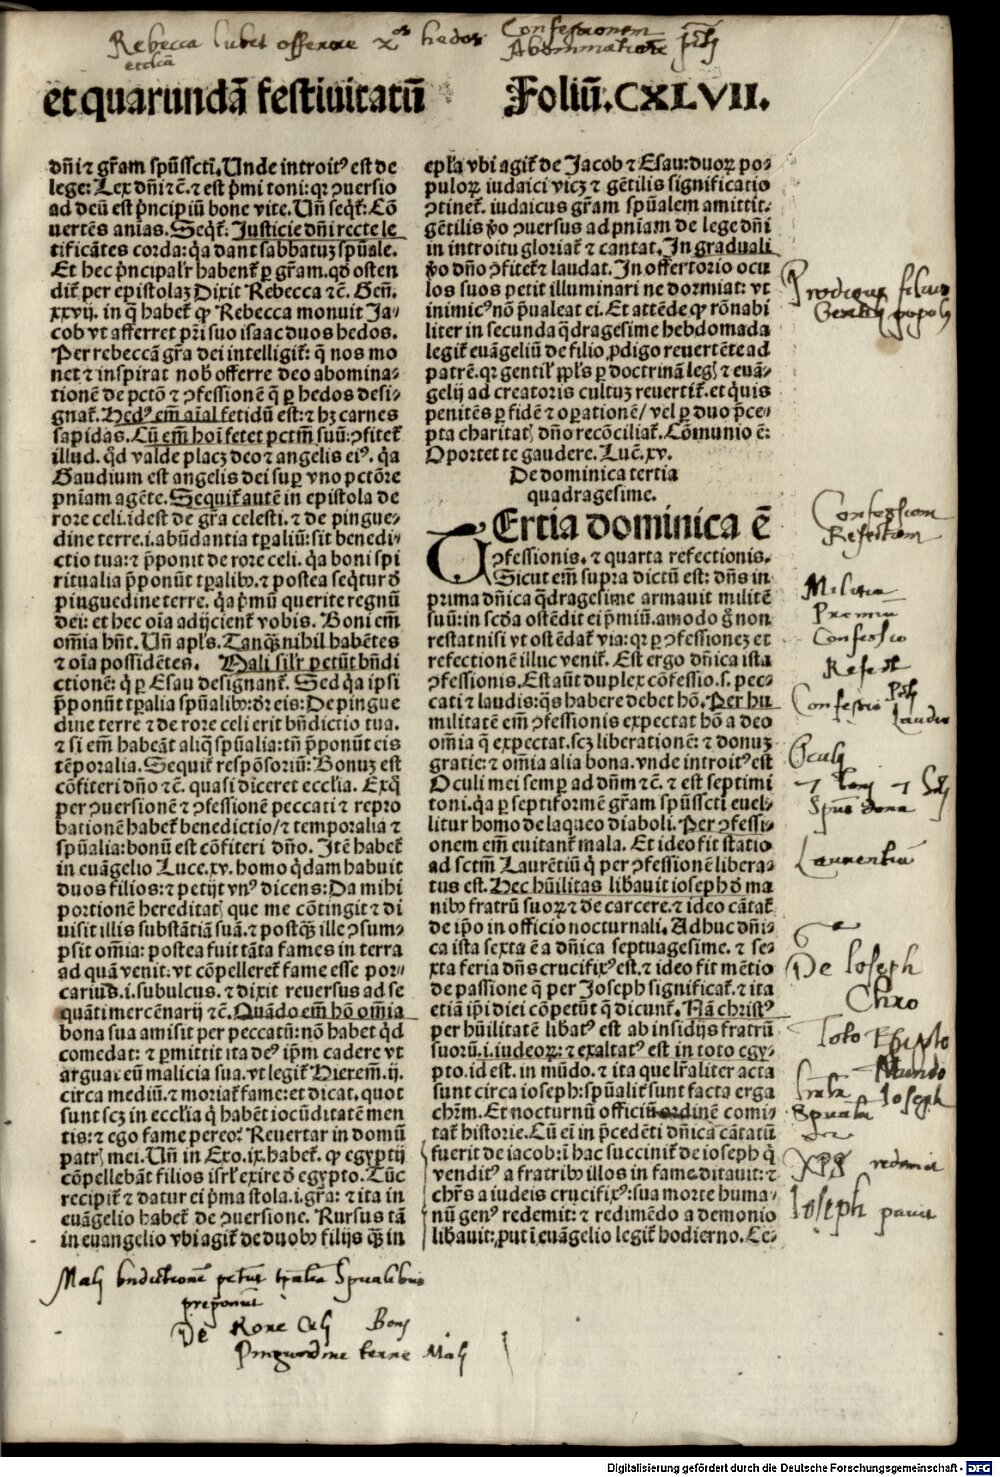 Rebecca iubet offerre hedos Confessionem
Abominationē
et quarundā festiuitatū Foliū.CXLVII.
dñi ⁊ gr̄am spūssctī. Unde introitꝰ est de
lege: Lex dñi ⁊c̄. ⁊ est p̄mi toni: qꝛ ↄuersio
ad deū est p̄ncipiū bone vite. Uñ seqt̄: Cō
uertēs aīas. Seqt̄: Justicie dñi recte le
tificātes corda: q̇a dant sabbatuz spūale.
Et hec p̄ncipal'r habent̄ ꝑ gr̄am. qđ osten
dit̄ per epistolaz Dixit Rebecca ⁊c̄. Geñ.
xxvij. in q̄ habet̄ ꝙ Rebecca monuit Ja⸗
cob vt afferret pr̄i suo isaac duos hedos.
Per rebeccā gr̄a dei intelligit̄: q̄ nos mo
net ⁊ inspirat nob̄ offerre deo abomina⸗
tionē de pctō ⁊ ↄfessionē q̄ ꝑ hedos desi⸗
gnat̄. Hedꝰ em̄ aīal fetidū est: ⁊ hꝫ carnes
sapidas. Cū em̄ hoī fetet pctm̄ suū: ↄfitet̄
illud. qđ valde placꝫ deo ⁊ angelis eiꝰ. q̇a
Gaudium est angelis dei suꝑ vno pctōre
pn̄iam agēte. Sequit̄ autē in epistola de
rore celi. idest de gr̄a celesti. ⁊ de pingue⸗
dine terre. i. abūdantia tꝑaliū: sit benedi⸗
ctio tua: ⁊ p̄ponit de rore celi. q̇a boni spi
ritualia p̄ponūt tꝑalibꝰ. ⁊ postea seqt̄ur đ
pinguedine terre. q̇a p̄mū querite regnū
dei: et hec oīa adijcient̄ vobis. Boni em̄
om̄ia hn̄t. Uñ apl's. Tanqꝫ nihil habētes
⁊ oīa possidētes. Mali sil'r petūt bn̄di
ctionē: q̄ ꝑ Esau designant̄. Sed q̇a ipsi
p̄ponūt tꝑalia spūalibꝰ: đr eis: De pingue
dine terre ⁊ de rore celi erit bn̄dictio tua.
⁊ si em̄ habeāt aliq̄ spūalia: tn̄ p̄ponūt eis
tēporalia. Sequit̄ respōsoriū: Bonuz est
cōfiteri dño ⁊c̄. quasi diceret ecclīa. Exq̇
per ↄuersionē ⁊ ↄfessionē peccati ⁊ repro
bationē habet̄ benedictio/ ⁊ temporalia ⁊
spūalia: bonū est cōfiteri dño. Itē habet̄
in euāgelio Luce. xv. homo q̇dam habuit
duos filios: ⁊ petijt vnꝰ dicens: Da mihi
portionē hereditatꝭ que me cōtingit ⁊ di
uisit illis substātiā suā. ⁊ postqꝫ ille ↄsum⸗
psit om̄ia: postea fuit tāta fames in terra
ad quā venit. vt cōpelleret̄ fame esse por⸗
cariuđ. i. subulcus. ⁊ dixit reuersus ad se
quāti mercēnarij ⁊c̄. Quādo em̄ hō om̄ia
bona sua amisit per peccatū: nō habet qđ
comedat: ⁊ ꝑmittit ita deꝰ ip̄m cadere vt
arguat eū malicia sua. vt legit̄ Hierem̄. ij.
circa mediū. ⁊ moriat̄ fame: et dicat. quot
sunt scꝫ in ecclīa q̄ habēt iocūditatē men
tis: ⁊ ego fame pereo? Reuertar in domū
patrꝭ mei. Uñ in Exo. ix. habet̄. ꝙ egyptij
cōpellebāt filios isrl' exire đ egypto. Tūc
recipit̄ ⁊ datur ei p̄ma stola. i. gr̄a: ⁊ ita in
euāgelio habet̄ de ↄuersione. Rursus tā
in euangelio vbi agit̄ de duobꝰ filijs qꝫ in
epl'a vbi agit̄ de Jacob ⁊ Esau: duoꝝ po⸗
puloꝝ iudaici vicꝫ ⁊ gētilis significatio
ↄtinet̄. iudaicus gr̄am spūalem amittit⸗
gētilis ꝟo ↄuersus ad pn̄iam de lege dñi
in introitu gloriat̄ ⁊ cantat. In graduali
ꝟo dño ↄfitet̄ ⁊ laudat. In offertorio ocu
los suos petit illuminari ne dormiat: vt
inimicꝰ nō p̄ualeat ei. Et attēde ꝙ rōnabi
liter in secunda q̄dragesime hebdomada
legit̄ euāgeliū de filio ꝓdigo reuertēte ad
patrē. qꝛ gentil' ppl's ꝑ doctrinā legꝭ ⁊ euā⸗
gelij ad creatoris cultuz reuertit̄. et q̇uis
penitēs ꝑ fidē ⁊ oꝑationē/ vel ꝑ duo p̄ce⸗
pta charitatꝭ dño recōciliat̄. Cōmunio ē:
Oportet te gaudere. Luc̄. xv.
De dominica tertia
quadragesime.
TErtia dominica ē
ↄfessionis. ⁊ quarta refectionis.
Sicut em̄ supra dictū est: dñs in
prima dñica q̄dragesime armauit militē
suū: in scđa ostēdit ei p̄miū. amodo g̊ non
restat nisi vt ostēdat̄ via: qꝛ ꝑ ↄfessionez et
refectionē illuc venit̄. Est ergo dñica ista
ↄfessionis. Est aūt duplex cōfessio. s. pec⸗
cati ⁊ laudis: q̄s habere debet hō. Per hu
militatē em̄ ↄfessionis expectat hō a deo
om̄ia q̄ expectat. scꝫ liberationē: ⁊ donuz
gratie: ⁊ om̄ia alia bona. vnde introitꝰ est
Oculi mei semꝑ ad dñm ⁊c̄. ⁊ est septimi
toni. q̇a ꝑ septiformē gr̄am spūsscti euel⸗
litur homo de laqueo diaboli. Per ↄfessi⸗
onem em̄ euitant̄ mala. Et ideo fit statio
ad sctm̄ Laurētiū q̇ per ↄfessionē libera⸗
tus est. Hec hūilitas libauit ioseph đ ma
nibꝰ fratrū suoꝝ ⁊ de carcere. ⁊ ideo cātat̄
de ip̄o in officio nocturnali. Adhuc dñi⸗
ca ista sexta ē a dñica septuagesime. ⁊ se⸗
xta feria dñs crucifixꝰ est. ⁊ ideo fit mētio
de passione q̄ per Joseph significat̄. ⁊ ita
etiā ip̄i diei cōpetūt q̄ dicunt̄. Nā christꝰ
per hūilitatē libatꝰ est ab insidijs fratrū
suorū. i. iudeoꝝ: ⁊ exaltatꝰ est in toto egy⸗
pto. id est. in mūdo. ⁊ ita que lr̄aliter acta
sunt circa ioseph: spūalit̄ sunt facta erga
chr̄m. Et nocturnū officiū ordinē comi⸗
tat̄ historie. Cū eī in p̄cedēti dñica cātatū
fuerit de iacob: ī hac succinit̄ de ioseph q̇
venditꝰ a fratribꝰ illos in fame ditauit: ⁊
chr̄s a iudeis crucifixꝰ: sua morte huma⸗
nū genꝰ redemit: ⁊ redimēdo a demonio
libauit: ꝓut ī euāgelio legit̄ hodierno. Ce⸗
Prodigus filius
Gentilis populus
Confessionem
Refectionem
Militia
Premia
Confessio
Refect
Confessio
Laudis
Oculj
Spūs dona
Laurentiū
De Ioseph
Chro
Toto Egypto
Mundo
Ioseph
Spualia
XPS redemit
Ioseph pauit
Malj bndictionē petūt tpalia Spualibus
preponūt
De Rore Celj Bonj
Pinguedine terre Malj
Digitalisierung gefördert durch die Deutsche Forschungsgemeinschaft - DFG